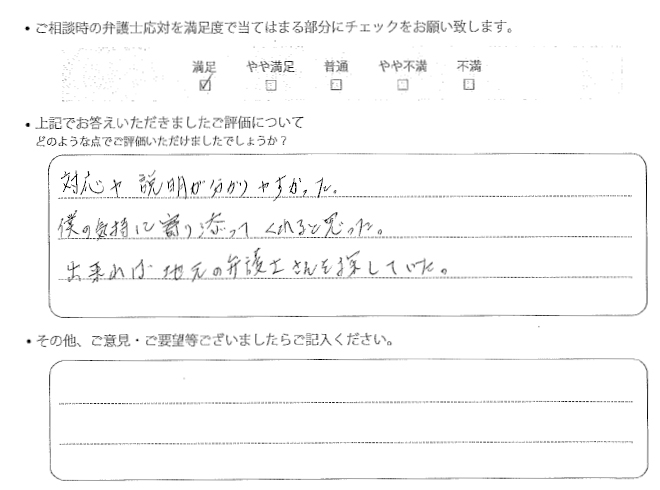 ・ご相談時の弁護士応対を満足度で当てはまる部分にチェックをお願い致します。
満足 やや満足 普通 やや不満 不満
☑ □ □ □ □
・上記でお答えいただきましたご評価について
どのような点でご評価いただけましたでしょうか？
対応や説明が分かりやすかった。
僕の気持に寄り添ってくれると思った。
出来れば地元の弁護士さんを探していた。
・その他、ご意見・ご要望等ございましたらご記入ください。